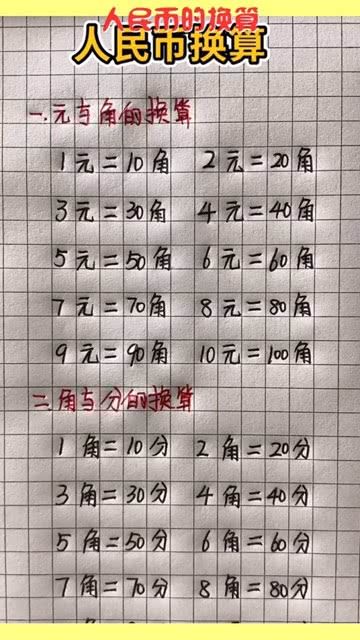 人民币的换算
人民币换算
一.元与角的换算
1元=10角 2元=20角
3元=30角 4元=40角
5元=50角 6元=60角
7元=70角 8元=80角
9元=90角 10元=100角
二.角与分的换算
1角=10分 2角=20分
3角=30分 4角=40分
5角=50分 6角=60分
7角=70分 8角=80分